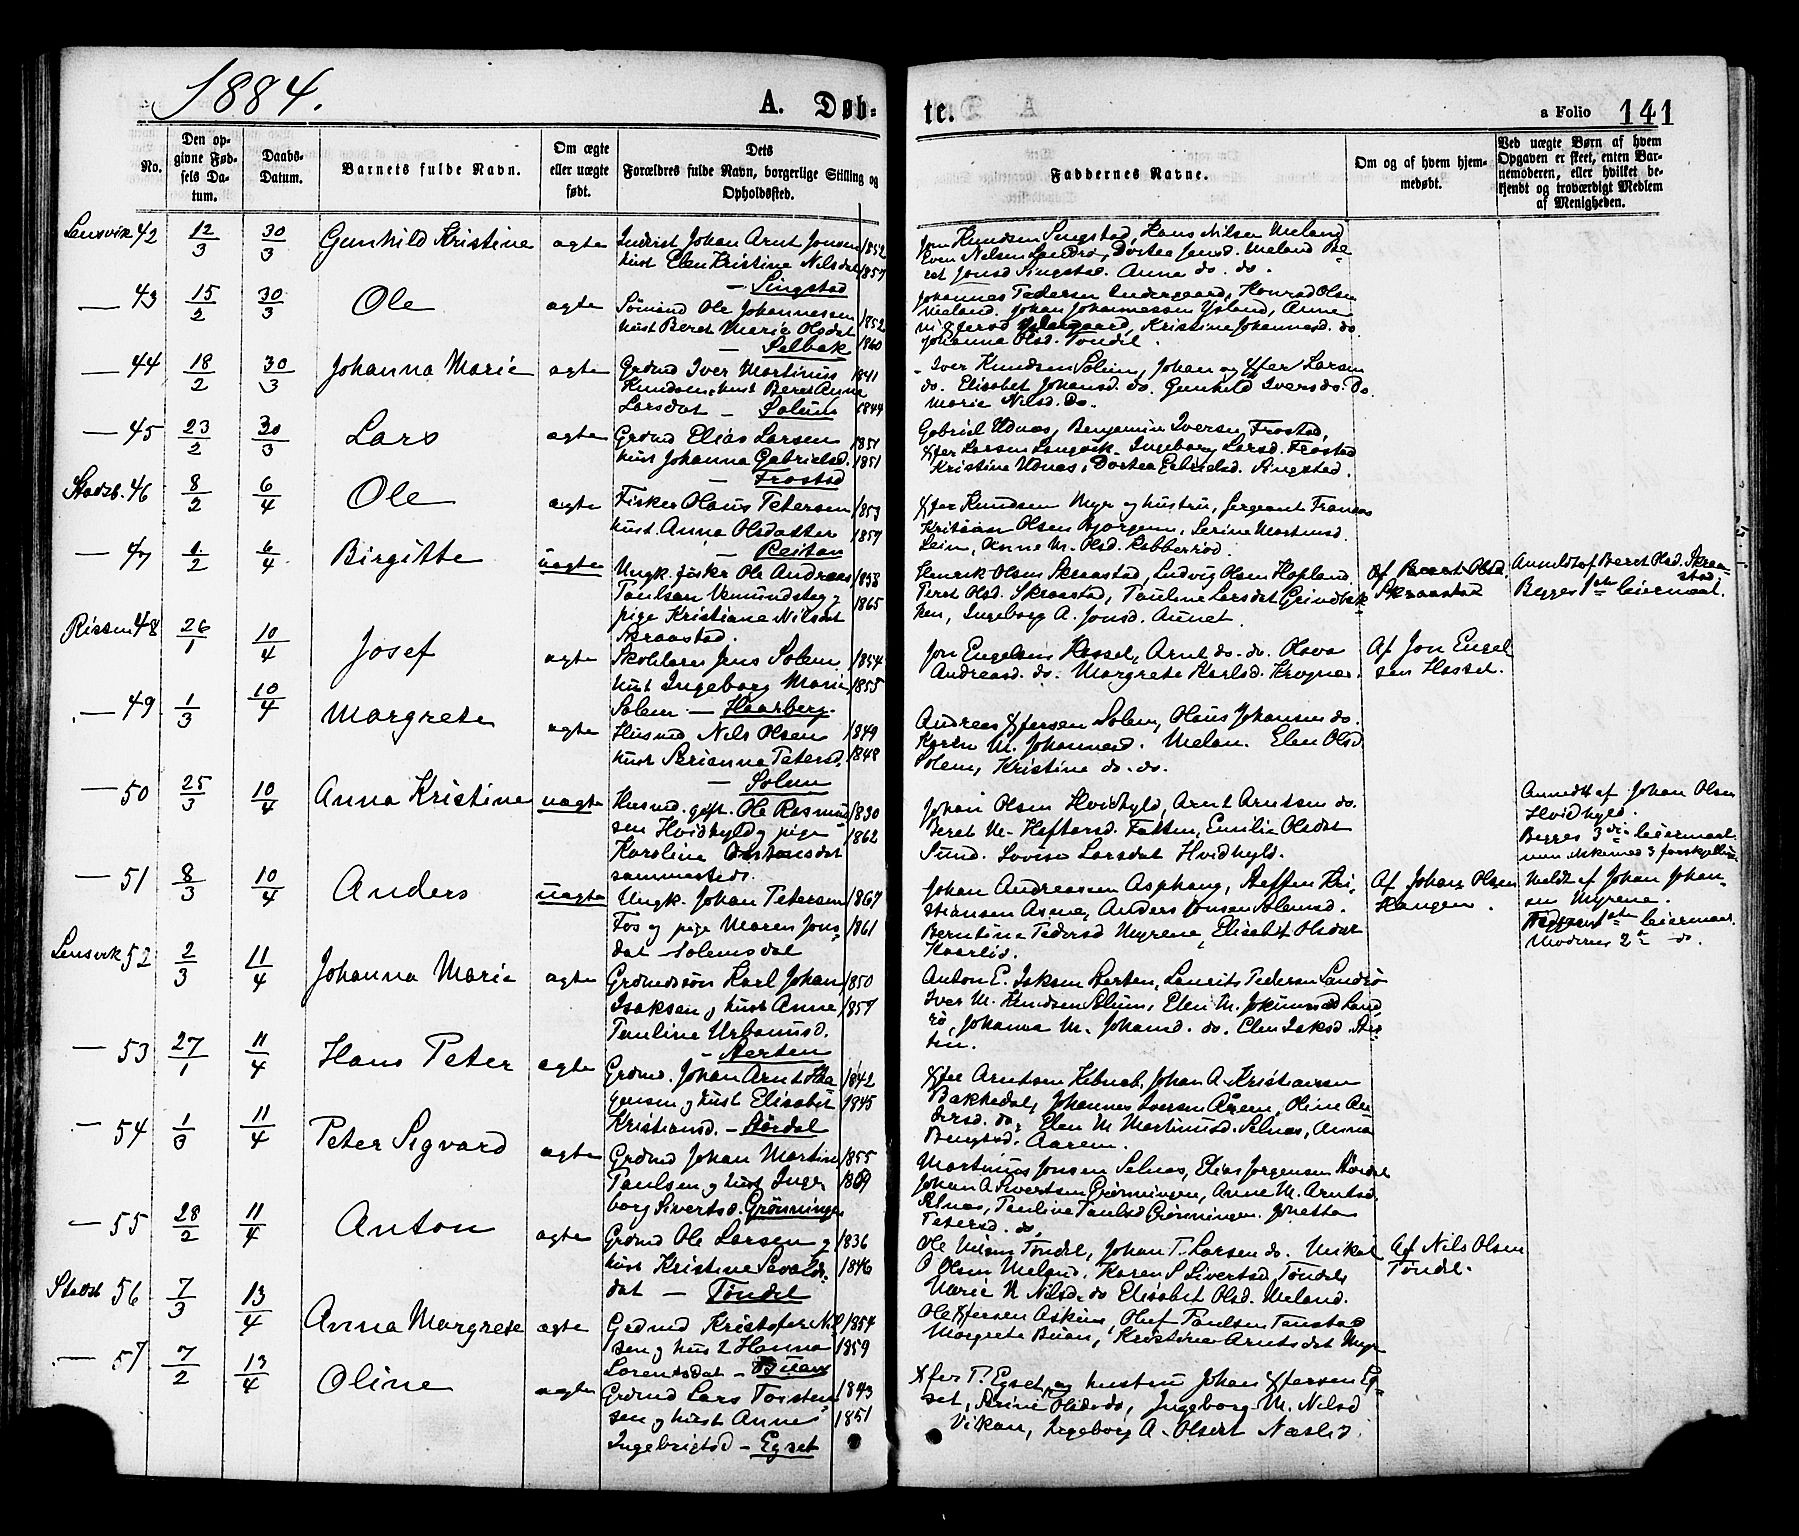 1884.
A. Døb-
te.
a Folio 141
No.
Den op-
givne Fød-
sels Da-
tum.
Daabs-
Datum.
Barnets fulde Navn.
Om ægte
eller uægte
født.
Dets
Forældres fulde Navn, borgerlige Stilling og
Opholdssted.
Faddernes Navne.
Om og af hvem hjem-
medøbt.
Ved uægte Børn af hvem
Opgaven er skeet, enten Bar-
nemoderen, eller hvilket be-
kjendt og troværdigt Medlem
af Menigheden.
Lensvik 42 12/3 30/3 Gunhild Kristine ægte
Inderst Johan Arnt Jonsen 1852
hust Elen Kristine Nilsdat 1857
— Singstad
Jon Knudsen Singstad, Hans Nilsen Meland
Even Nilsen Landrø, Dortea Jensd. Meland Be-
ret Jonsd Singstad. Anna do. do.
— 43 15/2 30/3 Ole ægte
Sømand Ole Johannessen 1852
hust Beret Marie Olsdat 1860
— Selbæk
Johannes Pedersen Indergaard, Konrad Olsen
Meland. Johan Johannessen Ysland, Anne
M Efersd Ydergaard, Kristine Johannesd. do
Johanna Olsd. Tøndel.
— 44 18/2 30/3 Johanna Marie ægte
Grdmd Iver Martinus 1841
Knudsen, hust Beret Anna
Larsdat — Solem 1844
Iver Knudsen Solem, Johan og Efer Larsen
do. Elisabet Johansd. do. Gunhild Iversd. do. Do
Marie Nilsd. Do.
— 45 23/2 30/3 Lars ægte
Grdmd Elias Larsen 1851
hust Johanna Gabrielsd. 1851
— Frostad
Gabriel Udnæs, Benjamin Iversen, Frostad,
Efer Larsen Lensvik, Ingeborg Larsd. Frostad
Kristine Udnæs, Dortea Gabrielsd. Singstad.
Stadsb. 46 8/2 6/4 Ole ægte
Fisker Olaus Petersen 1853
hust. Anna Olsdatter 1857
— Reitan
Efer Knudsen Myr og hustru, Sergeant Frantz
Kristian Olsen Bjørgem, Serine Mortensd.
Lein, Anne M. Olsd. Rabberød.
— 47 1/2 6/4 Birgitte uægte
Ungk. fisker Ole Andreas 1858
Paulsen Vemundsteg og 1865
pige Kristiane Nilsdat
Skraastad.
Henrik Olsen Skraastad, Ludvig Olsen Hofland
Beret Olsd. Skraastad, Pauline Larsdat Grindbak-
ken, Ingeborg A. Jonsd. Aunet.
Af Beret Olsd.
Skraastad
Anmeldt af Beret Olsd. Skraa-
stad,
Begges 1ste leiermaal.
Rissen 48 26/1 10/4 Josef ægte
Skolelærer Jens Solem 1854
hust Ingeborg Marie 1855
Solem — Haarberg.
Jon Engelsen Hassel, Arnt do. do. Olava
Andreasd. do. Margrete Karlsd. Krognes.
Af Jon Engel
sen Hassel.
— 49 1/3 10/4 Margrete ægte
Husmd Nils Olsen 1849
hust Serianna Petersd. 1848
— Solem
Andreas Efersen Solem, Olaus Johansen do.
Karen M. Johannesd. Melan. Elen Olsd.
Solem, Kristine do. do.
— 50 25/3 10/4 Anna Kristine uægte
Husmd. gift. Ole Rasmus- 1830
sen Hvidhyld og pige 1862
Karoline Østensdat
sammesteds.
Johan Olsen Hvidhyld, Arnt Arntsen do.
Beret M. Heftersd. Fatten, Emilie Olsdat
Sund. Lovise Larsdat Hvidhyld.
Anmeldt af Johan Olsen
Hvidhyld.
Begges 3die leiermaal.
— 51 8/3 10/4 Anders uægte
Ungk. Johan Petersen 1867
Fos og pige Maren Jons- 1861
dat Solemsdal
Johan Andreassen Asphaug, Steffen Kri-
stiansen Asmo, Anders Jonsen Solemsd.
Berntine Pedersd Myrene, Elisabet Olsdat
Haarlid.
Af Johan Olsen
Haugen.
Meldt af Johan Johan-
sen Myrene.
Faderens 1ste leiermaal.
Moderens 2det do.
Lensvik 52 2/3 11/4 Johanna Marie ægte
Grdmdssøn Karl Johan 1850
Isaksen og hust Anne 1857
Pauline Urbanusd.
— Sterten
Anton E. Isksen Sterten, Laurits Pedersen Landrø
Iver M. Knudsen Solem, Elen M. Jokumsd Land-
rø, Johanna M. Johansd. do. Elen Isaksd. Ster-
ten.
— 53 27/1 11/4 Hans Peter ægte
Grdmd. Johan Arnt Haa- 1842
gensen og hust Elisabet 1845
Kristiansd. — Stordal
Efer Arntsen Kibnab, Johan A. Kristiansen
Bakkedal, Johannes Iversen Aarem, Oline An-
dersd. do, Elen M Martinusd. Selnæs, Anna
Bengtsd. Aarem.
— 54 1/3 11/4 Peter Sigvard ægte
Grdmd Johan Martin 1855
Paulsen og hust Inge- 1859
borg Sivertsd. Grønningen
Martinus Jonsen Selnæs, Elias Jørgensen Størdal
Johan A. Sivertsen Grønningen, Anne M. Arntsd.
Selnæs, Pauline Paulsd Grønningen. Jonetta
Petersd. do.
— 55 28/2 11/4 Anton ægte
Grdmd Ole Larsen og 1836
hust Kristine Sevalds- 1846
dat — Tøndel
Ole Nilsen Tøndel, Johan T. Larsen do. Mikal
O Olsen Meland. Karen S Sivertsd. Tøndel,
Marie N Nilsd. do Elisabet Olsd. Meland.
Af Nils Olsen
Tøndel.
Stadsb 56 7/3 13/4 Anna Margrete ægte
Grdmd Kristofer Nil- 1854
sen og hust Hanna 1859
Lorentsdat — Buan
Ole Efersen Askim, Oluf Paulsen Taustad
Margrete Buan, Kristine Arntsdat Myr
— 57 7/2 13/4 Oline ægte
Grdmd Lars Torsten- 1843
sen og hust Anne 1851
Ingebrigtsd — Egset
Efer P. Egset, og hustru Johan Efersen Eg-
set, Serine Olsd do, Ingeborg M. Nilsd
Vikan, Ingeborg A. Olsdt Næsli.